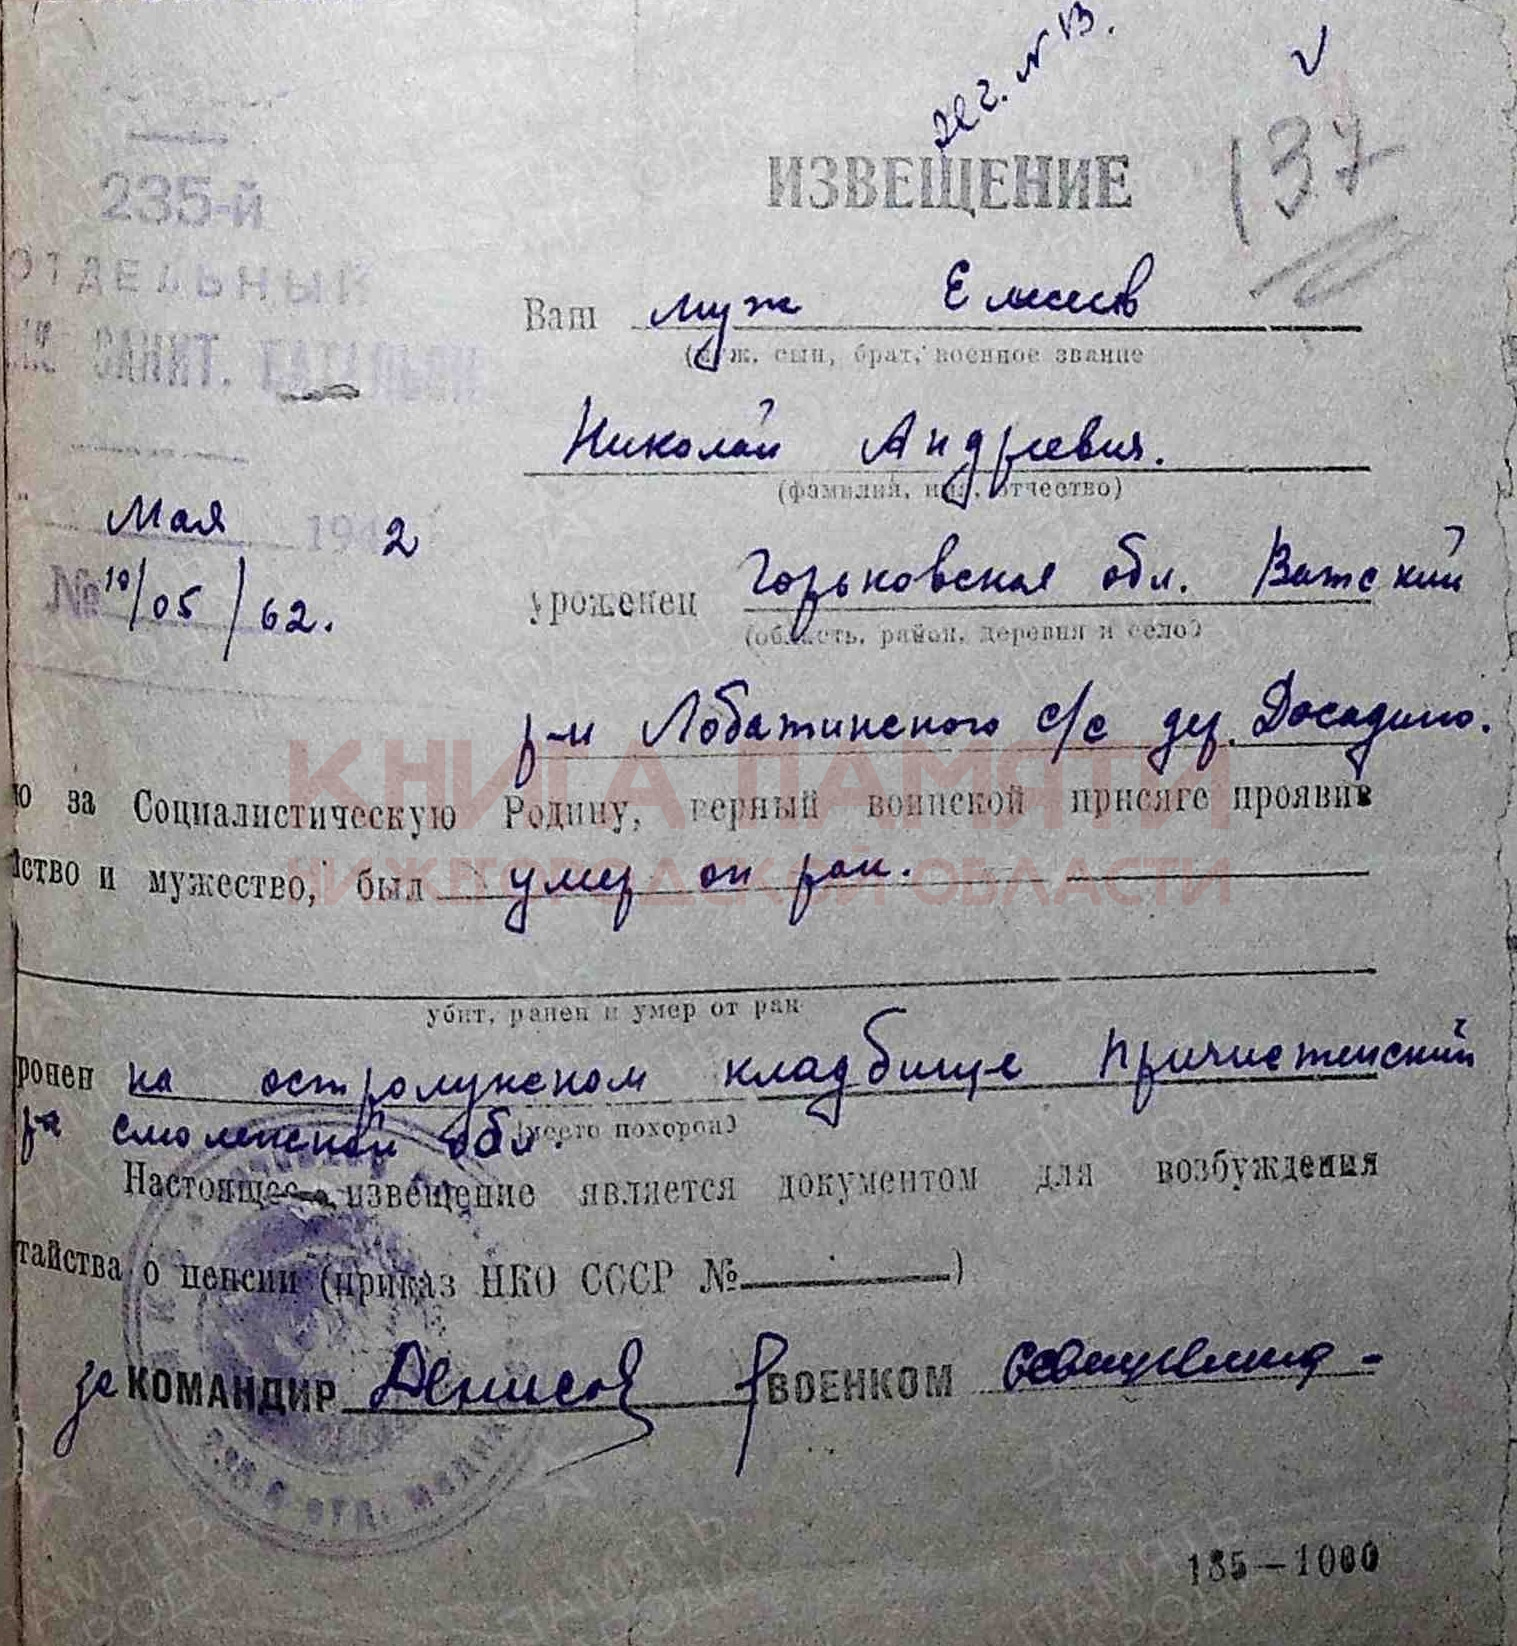 № 13.
137
235-й
ОТДЕЛЬНЫЙ
САНИТ. БАТАЛЬОН
Мая 1942
№ 10/05/62.
ИЗВЕЩЕНИЕ
Ваш муж Елисеев
(муж, сын, брат, военное звание
Николай Андреевич.
(фамилия, имя, отчество)
уроженец Горьковская обл. Ватский
(область, район, деревня и село)
р-н Лобатинского с/с дер. Досадино.
ю за Социалистическую Родину, верный воинской присяге проявив
йство и мужество, был умер от ран.
убит, ранен и умер от ран
ронен на остролужском кладбище Пречистенский
р-а Смоленской обл.
(место похорон)
Настоящее извещение является документом для возбуждения
тайства о пенсии (приказ НКО СССР №)
КОМАНДИР Денисов ВОЕНКОМ
235-й ОТД. МЕДИК
185—1000
КНИГА ПАМЯТИ
НИЖЕГОРОДСКОЙ ОБЛАСТИ